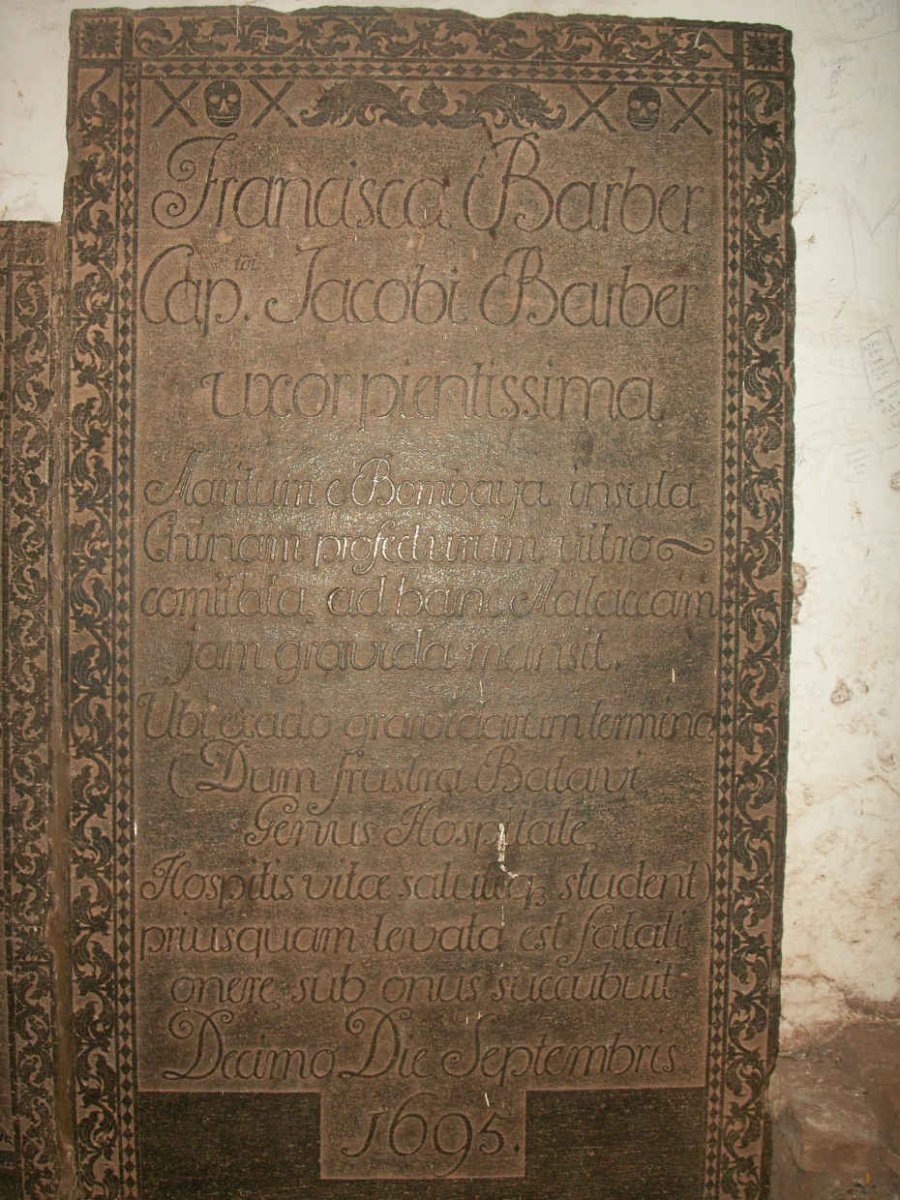 Francisca Barber
Cap.tni Jacobi Barber
uxor pientissima
Maritum e Bombaya insula
Chinam profecturum ultro
comitata, ad hanc Malaccam
jam gravida mansit.
Ubi exacto graviditatum termino
(Dum frustra Batavi
Genius Hospitale,
Hospitis vitæ salutiq; student)
priusquam levata est fatali
onere, sub onus succubuit
Decimo Die Septembris
1695.